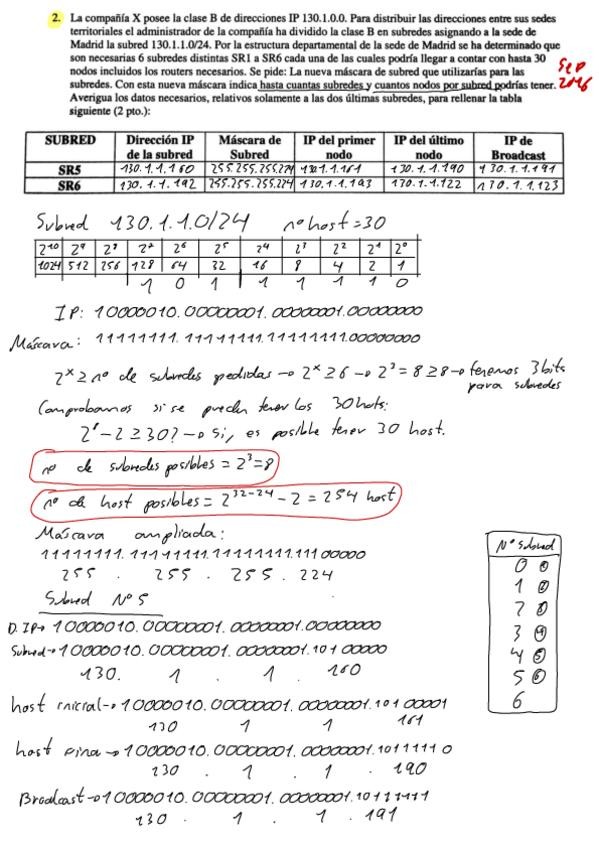 2. La compañía X posee la clase B de direcciones IP 130.1.0.0. Para distribuir las direcciones entre sus sedes
territoriales el administrador de la compañía ha dividido la clase B en subredes asignando a la sede de
Madrid la subred 130.1.1.0/24. Por la estructura departamental de la sede de Madrid se ha determinado que
son necesarias 6 subredes distintas SR1 a SR6 cada una de las cuales podría llegar a contar con hasta 30
nodos incluidos los routers necesarios. Se pide: La nueva máscara de subred que utilizarías para las
subredes. Con esta nueva máscara indica hasta cuantas subredes y cuantos nodos por subred podrías tener.
Averigua los datos necesarios, relativos solamente a las dos últimas subredes, para rellenar la tabla
siguiente (2 pto.):
Sep
2016
SUBRED Dirección IP de la subred Máscara de Subred IP del primer nodo IP del último nodo IP de Broadcast
SR5 130.1.1.160 255.255.255.224 130.1.1.161 130.1.1.190 130.1.1.191
SR6 130.1.1.192 255.255.255.224 130.1.1.193 130.1.1.122 130.1.1.123
Subred 130.1.1.0/24 nº host=30
2^10 2^9 2^8 2^7 2^6 2^5 2^4 2^3 2^2 2^1 2^0
1024 512 256 128 64 32 16 8 4 2 1
1 0 1 1 1 1 1 0
IP: 10000010.00000001.00000001.00000000
Máscara: 11111111.11111111.11111111.00000000
2^x ≥ nº de subredes pedidas → 2^x ≥ 6 → 2^3 = 8 ≥ 8 → tenemos 3 bits
para subredes
Comprobamos si se pueden tener los 30 hots:
-2 ≥ 30? → Si, es posible tener 30 host.
nº de subredes posibles = 2^3 = 8
nº de host posibles = 2^32-24 - 2 = 254 host
Máscara ampliada:
11111111.11111111.11111111.11100000
255 . 255 . 255 . 224
Subred Nº 5
D. IP→ 10000010.00000001.00000001.00000000
Subred→ 10000010.00000001.00000001.10100000
130. 1 . 1 . 160
host inicial→ 10000010.00000001.00000001.10100001
130 1 1 161
host fina→ 10000010.00000001.00000001.10111110
130 . 1 . 1 . 190
Broadcast→ 10000010.00000001.00000001.10111111
130 . 1 . 1 . 191
Nº Subred
0 ①
1 ②
2 ③
3 ④
4 ⑤
5 ⑥
6